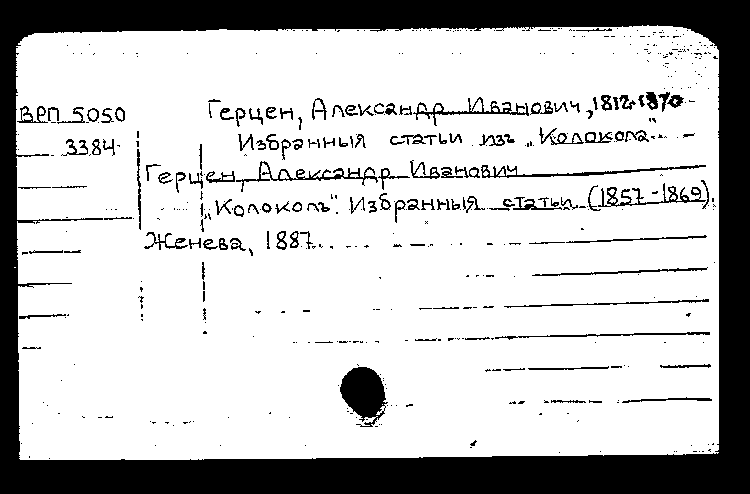 ВРП 5050
3384
Герцен, Александр Иванович, 1812-1870
Избранныя статьи изъ „Колокола"
Герцен, Александр Иванович
„Колоколъ". Избранныя статьи (1857-1869).
Женева, 1887.